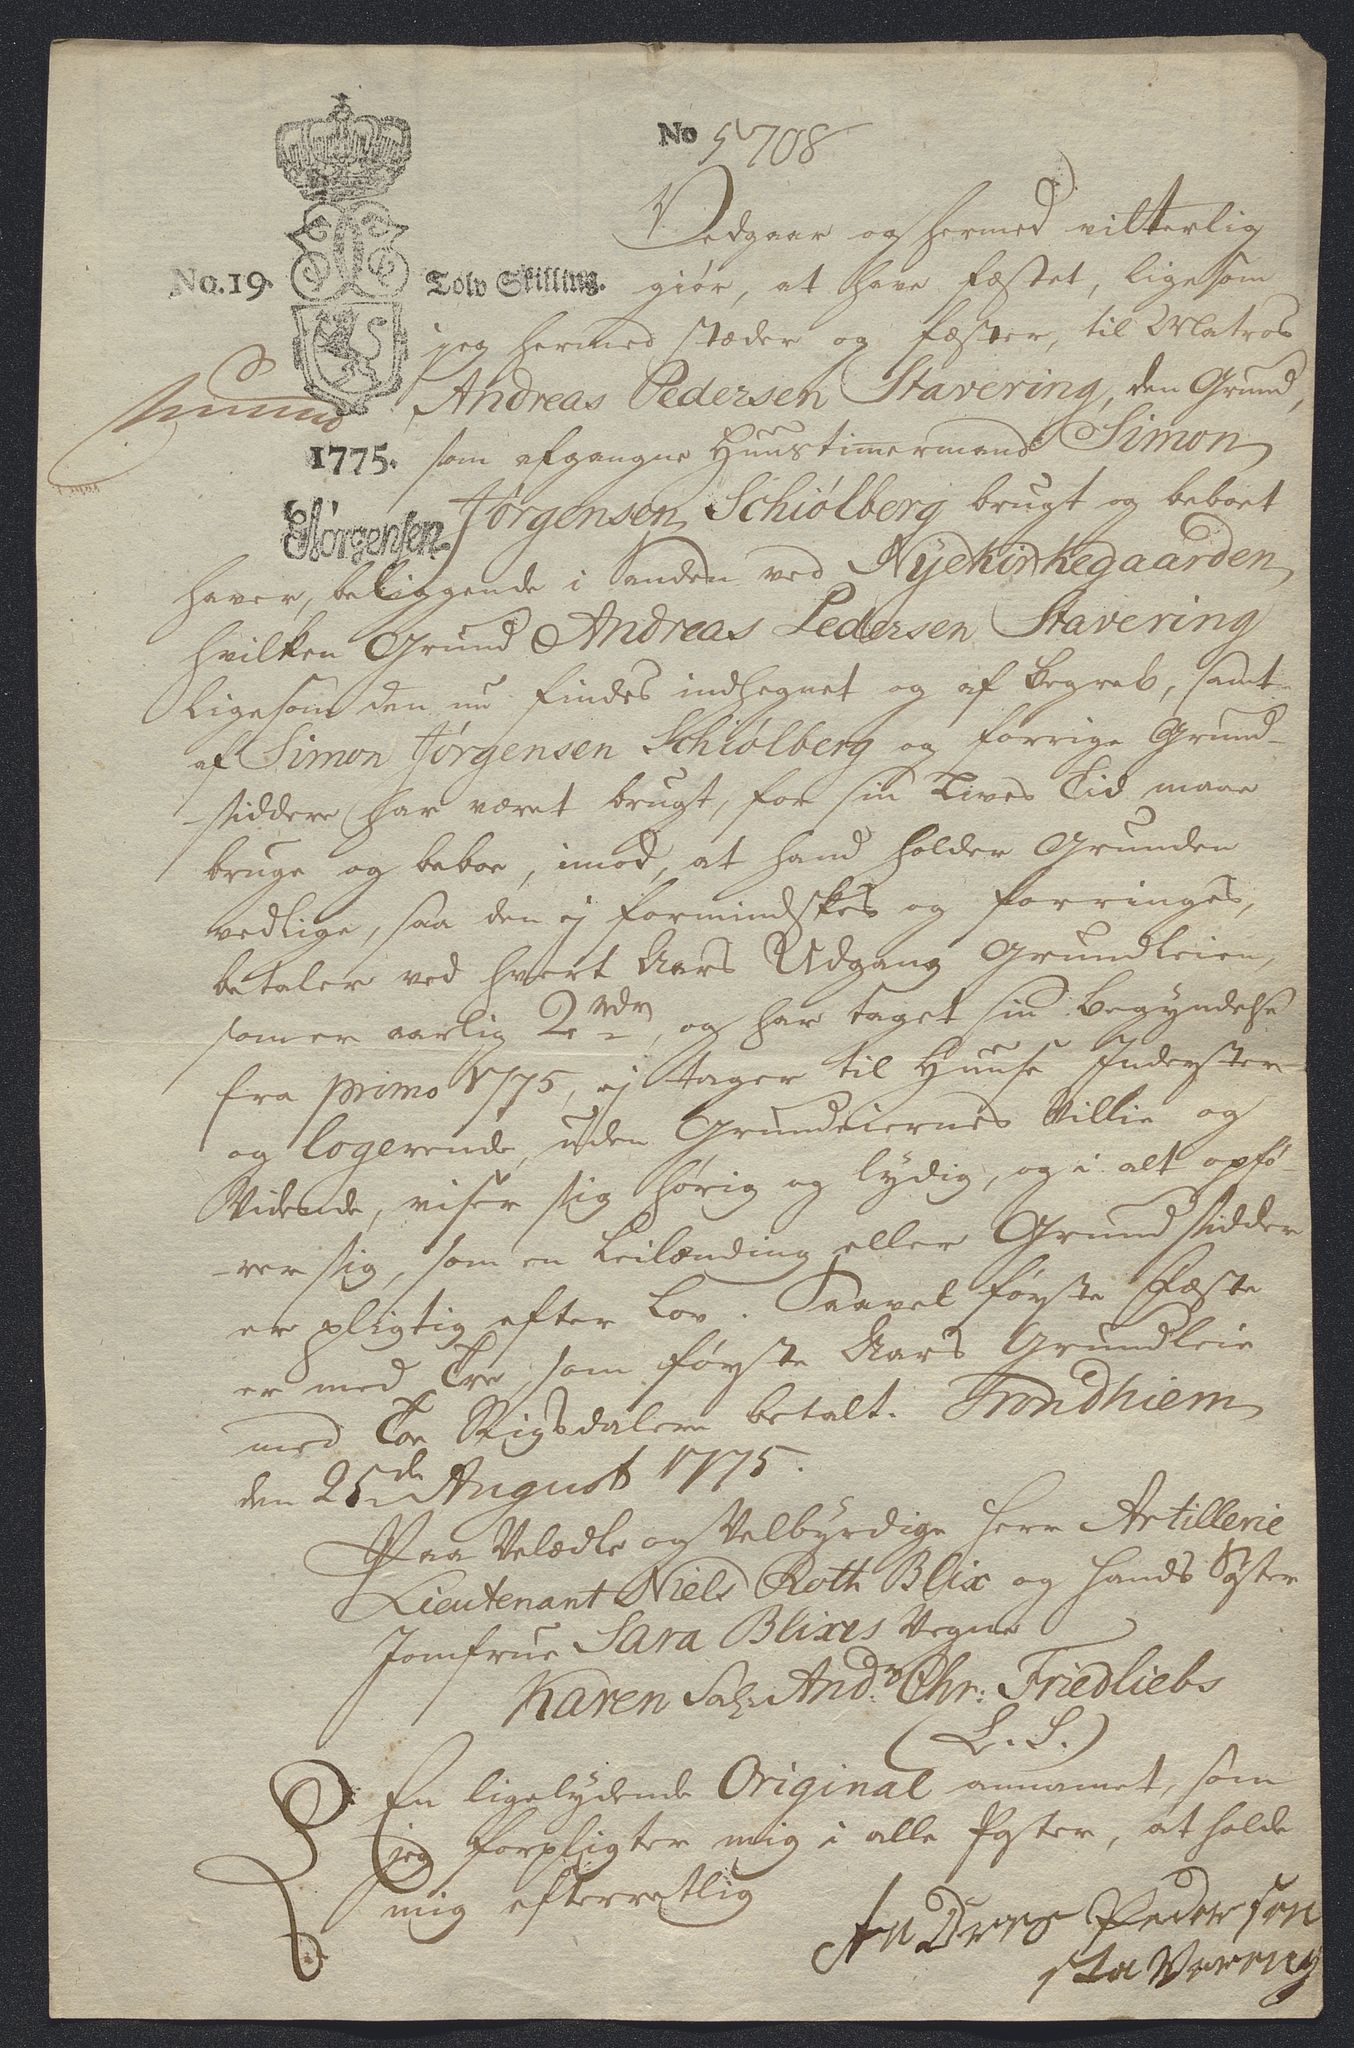 No 5708
No. 19. Tolv Skilling.
1775.
EJørgensen.
Vedgaar og hermed vitterlig
giør at have fæstet, ligesom
jeg hermed stæder og fæster, til Matros
Andreas Pedersen Stavering, den Grund,
som afgangne Huustimermand Simon
Jørgensen Schiølberg brugt og beboet
haver, beliggende i Sanden ved Nyekirkegaarden
hvilken Grund Andreas Pedersen Stavering
ligesom den nu findes indhegnet og af Begreb, samt
af Simon Jørgensen Schiølberg og forrige Grund-
siddere har været brugt, for sin Lives Tid maae
bruge og beboe, imod, at hand holder Grunden
vedlige, saa den ej formindskes og forringes,
betaler ved hvert Aars Udgang Grundleien,
som er aarlig 2 rdr, og har taget sin Begyndelse
fra primo 1775, ej tager til Huuse Inderster
og logerende, uden Grundeiernes Villie og
Vidende, viser sig hørig og lydig, og i alt opfø-
rer sig, som en Leilænding eller Grundsidder
er pligtig efter Lov. Saavel første Fæste
er med Tre, som første Aars Grundleie
med Toe Rigsdalere betalt. Trondhiem
den 25de August 1775.
Paa Velædle og Velbyrdige Herr Artillerie
Lieutenant Niels Roth Blix og hands Syster
Jomfrue Sara Blixes Vegne
Karen Sal: And: Chr: Friedliebs
(L. S.)
En ligelydende Original annamet, som
jeg forpligter mig i alle Poster, at holde
mig efterretlig
Andreas Pedersen
staVering